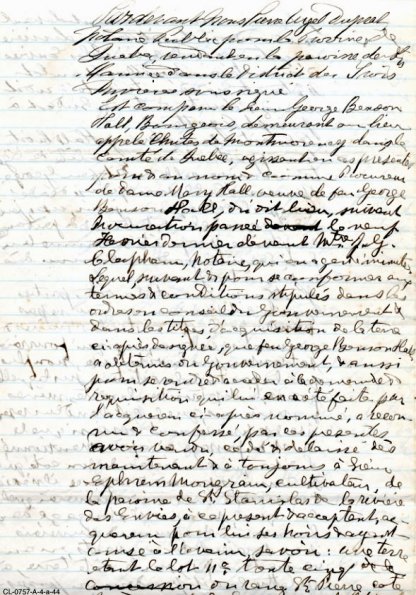 Pardevant Nous Pierre Angel Dupral
Notaire Public pour la Province de
Quebec, residant en la paroisse de St
dans le district des Trois
Rivieres soussigné
Est comparu le sieur George Benson
Hall, Bourgeois, demeurant au lieu
appelé Chutes de Montmorency dans le
Comté de Quebec, agissant en ces presentes
au nom & comme Procureur
de dame Mary Hall, veuve de feu George
Benson Hall, du dit lieu, suivant
procuration passée devant le neuf
Fevrier dernier devant Mtre J. G.
Clapham, Notaire, qui en a gardé minute
Lequel, suivant & pour se conformer aux
termes & conditions stipulés dans les
ordres en conseil du Gouvernement &
dans les titres d'acquisition de la terre
ci après designée, que feu George Benson Hall
a obtenus du Gouvernement, & aussi
pour se rendre à la demande &
requisition qui lui en a été faite par
l'acquereur ci après nommé, a recon
nu & confessé, par ces presentes
avoir vendu, cédé & delaissé dès
maintenant & à toujours à Sieur
Ephrem Mongrain, cultivateur, de
la paroisse de St Stanislas de la rivière
des Envies, à ce present & acceptant, ac
quereur pour lui ses hoirs & ayant
cause à l'avenir, savoir: une terre
etant le lot No trente cinq de la
concession du rang St Pierre coté
CL-0757-A-4-a-44